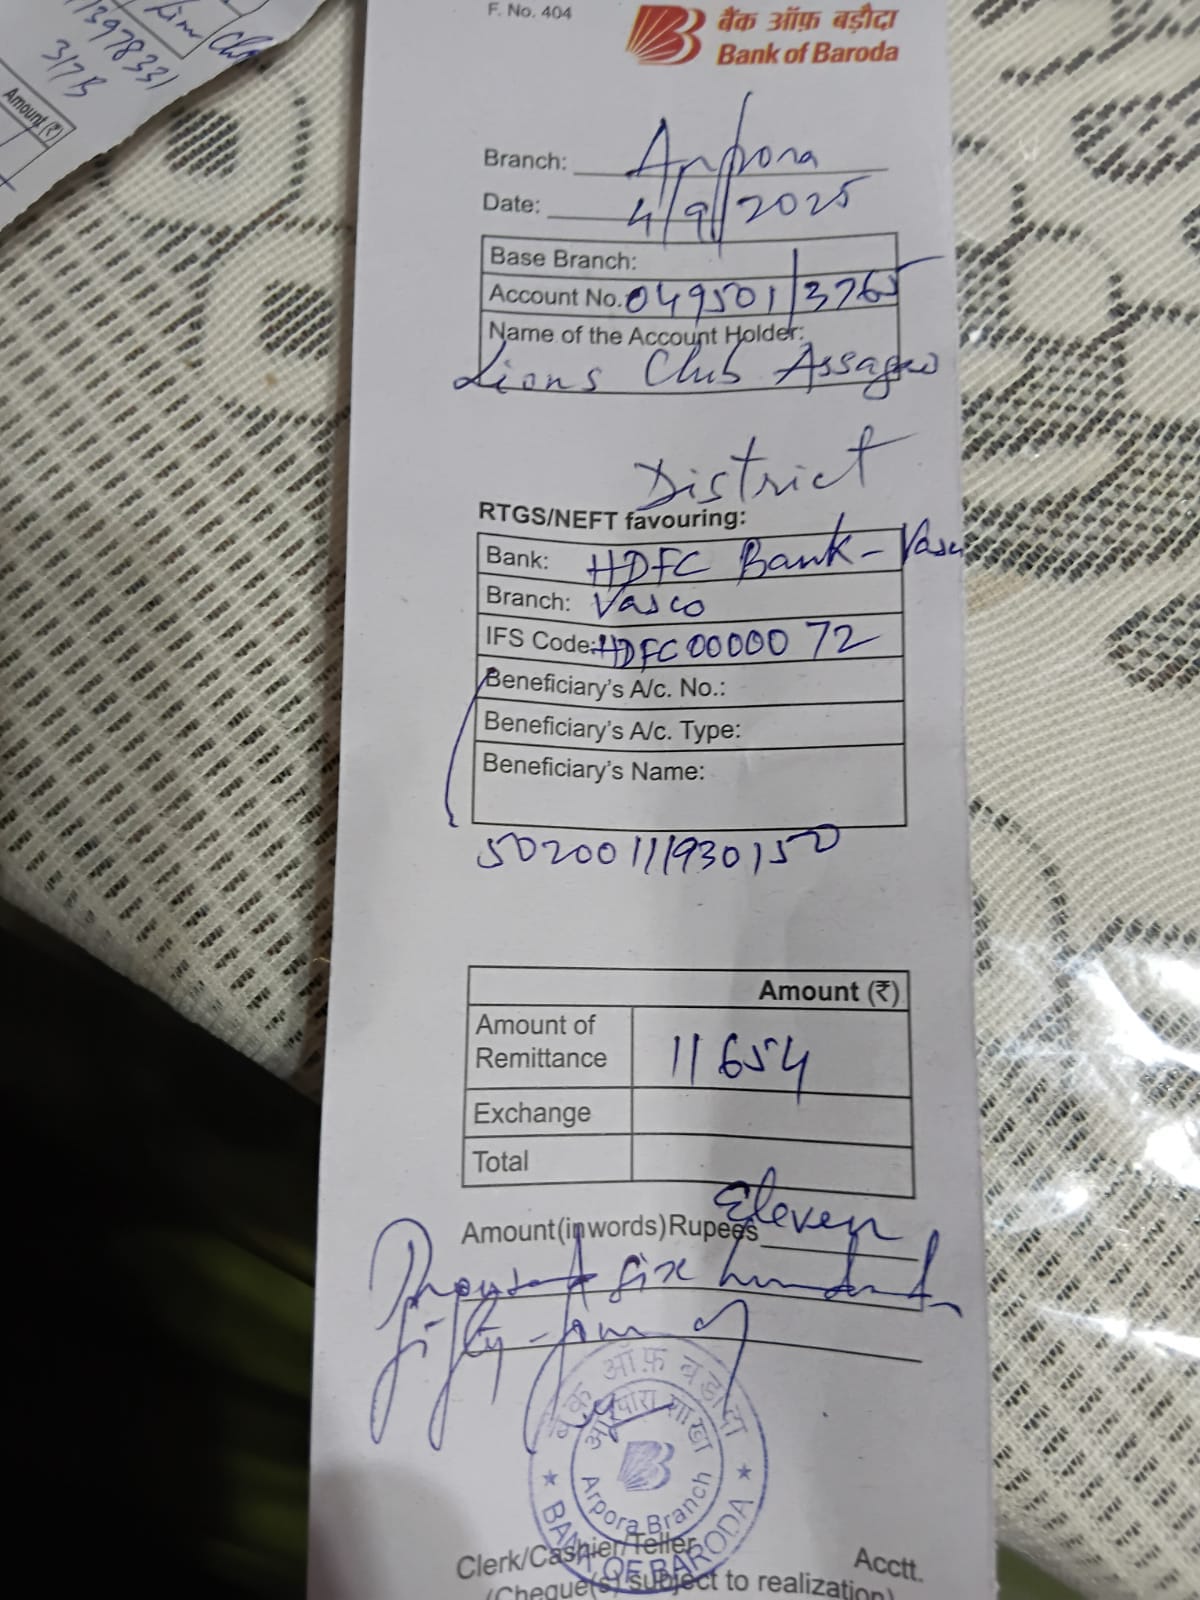 Lions Club
13978331
317B
Amount (₹)
F. No. 404
बैंक ऑफ़ बड़ौदा
Bank of Baroda
Branch: Arpora
Date: 4/9/2025
Base Branch:
Account No. 049501/3765
Name of the Account Holder:
Lions Club Assagao
District
RTGS/NEFT favouring:
Bank: HDFC Bank - Vasco
Branch: Vasco
IFS Code: HDFC0000072
Beneficiary's A/c. No.:
Beneficiary's A/c. Type:
Beneficiary's Name:
50200111930150
Amount (₹)
Amount of Remittance 11654
Exchange
Total
Amount (in words) Rupees Eleven
Thousand six hundred
fifty-four
बैंक ऑफ़ बड़ौदा
आरपोरा शाखा
Arpora Branch
BANK OF BARODA
Clerk/Cashier/Teller Acctt.
(Cheque(s) subject to realization)